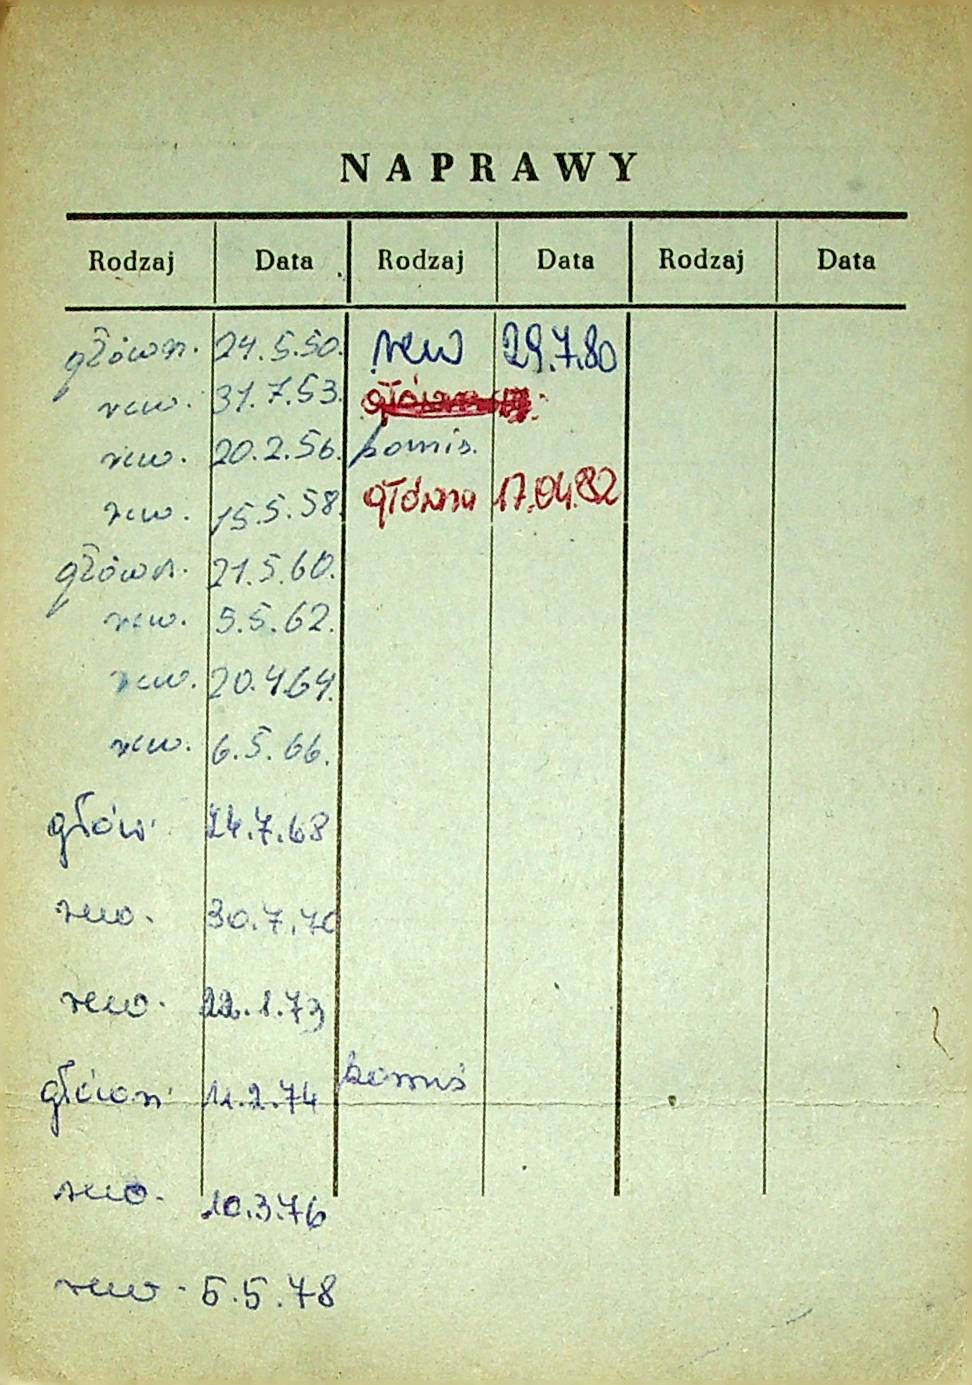 NAPRAWY
Rodzaj Data Rodzaj Data Rodzaj Data
główn. 24.5.50. rew 29.7.80
rew. 31.7.53.
rew. 20.2.56. komis.
rew. 15.5.58. główna 17.04.82
główn. 21.5.60.
rew. 5.5.62.
rew. 20.4.64.
rew. 6.5.66.
główn. 24.7.68
rew. 30.7.70
rew. 22.1.73
główn. 11.2.74 komis
rew. 10.3.76
rew. 5.5.78